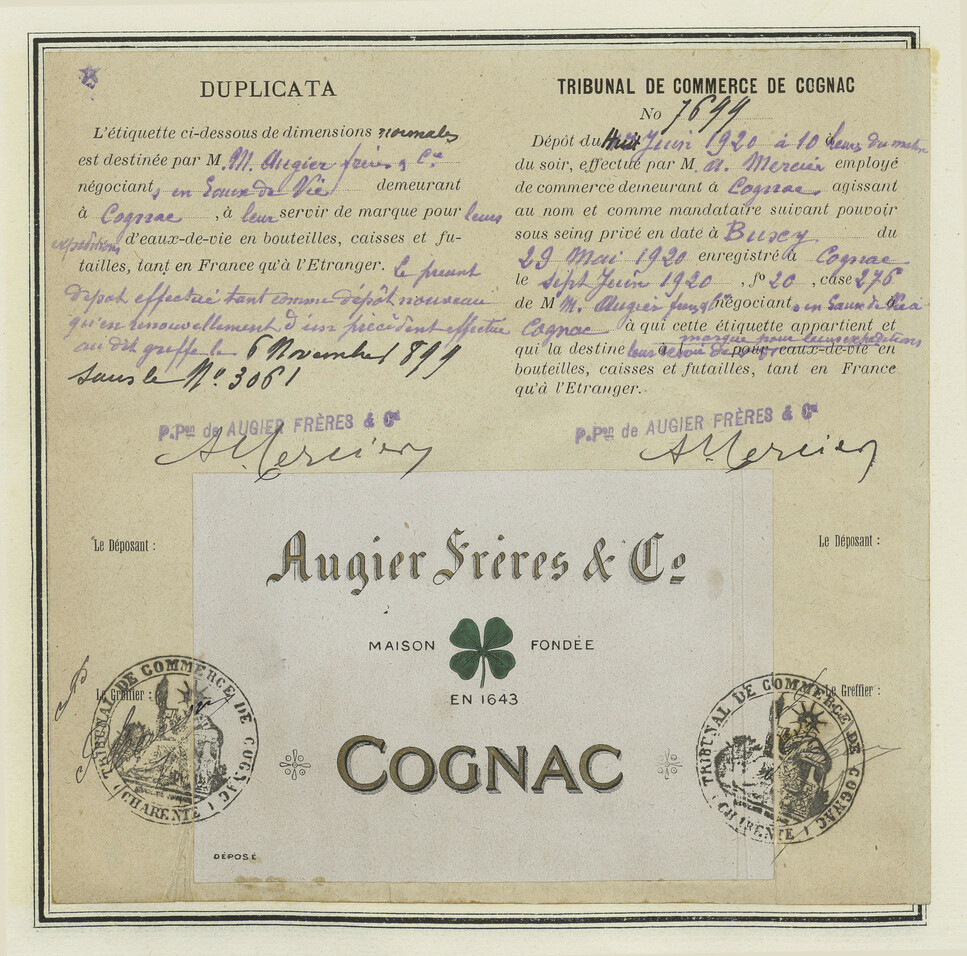 DUPLICATA
L'étiquette ci-dessous de dimensions normales
est destinée par M. M. Augier frères & Cie
négociants en Eaux de Vie demeurant
à Cognac, à leur servir de marque pour leurs
expéditions d'eaux-de-vie en bouteilles, caisses et fu-
tailles, tant en France qu'à l'Etranger. Le présent
dépôt effectué tant comme dépôt nouveau
qu'en renouvellement d'un précédent effectué
au dit greffe le 6 Novembre 1899
sous le No. 3061
P.Pon de AUGIER FRÈRES & Cie
A Mercier
TRIBUNAL DE COMMERCE DE COGNAC
No 7699
Dépôt du Juin 1920 à 10 heures du matin
du soir, effectué par M. A. Mercier employé
de commerce demeurant à Cognac, agissant
au nom et comme mandataire suivant pouvoir
sous seing privé en date à du
29 Mai 1920 enregistré à Cognac
le sept Juin 1920, fo 20, case 276
de M. M. Augier frères négociants en Eaux de Vie à
Cognac à qui cette étiquette appartient et
marque pour leurs expéditions
qui la destine à pour eaux-de-vie en
bouteilles, caisses et futailles, tant en France
qu'à l'Etranger.
P.Pon de AUGIER FRÈRES & Cie
A Mercier
Le Déposant :
Le Déposant :
Augier Frères & Co
MAISON FONDÉE
EN 1643
COGNAC
DÉPOSÉ
Le Greffier :
TRIBUNAL DE COMMERCE DE COGNAC
(CHARENTE)
Le Greffier :
TRIBUNAL DE COMMERCE DE COGNAC
(CHARENTE)